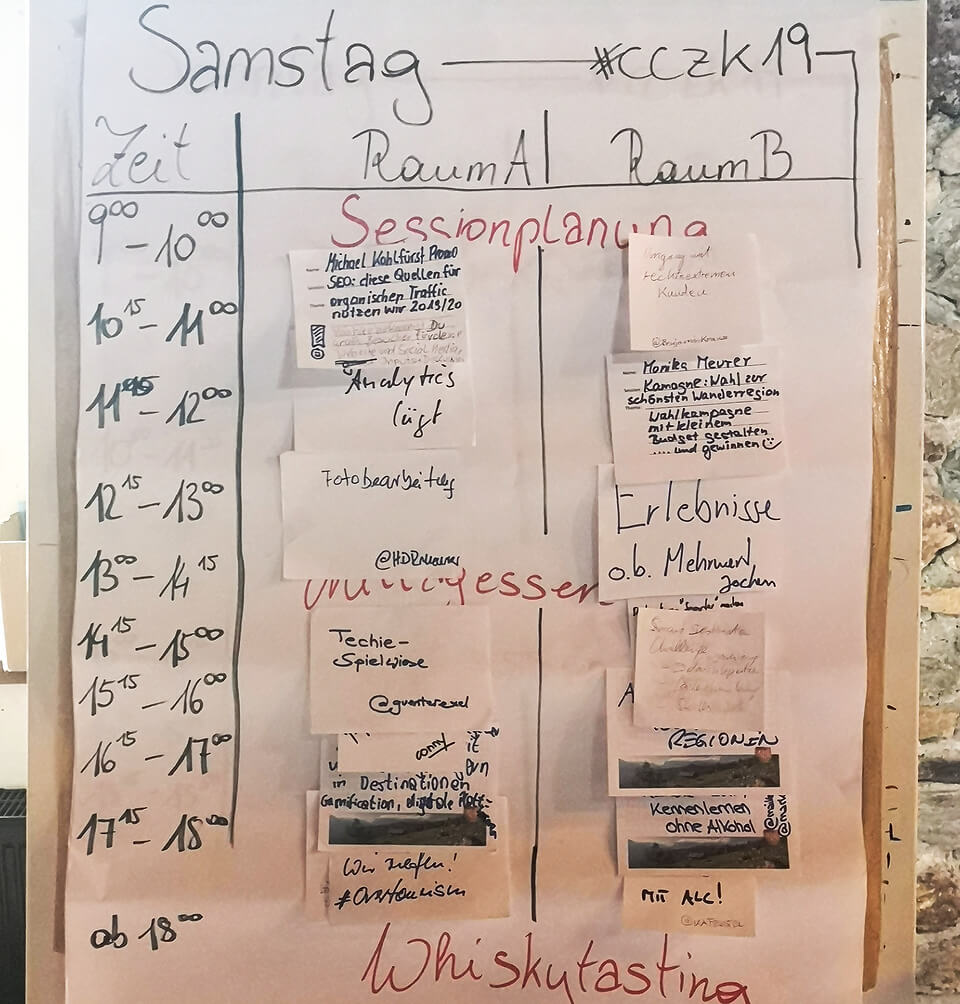 Samstag — #cczk19
Zeit
Raum A
Raum B
9⁰⁰ – 10⁰⁰
Sessionplanung
10¹⁵ – 11⁰⁰
Michael Kohlfürst Promo
SEO: diese Quellen für
organischen Traffic
nutzen wir 2019/20
Umgang mit
rechtsextremen
Kunden
11¹⁵ – 12⁰⁰
Analytics
lügt
Monika Meurer
Kamagne: Wahl zur
schönsten Wanderregion
Wahlkampagne
mit kleinem
Budget gestalten
.... und gewinnen
12¹⁵ – 13⁰⁰
Fotobearbeitung
Erlebnisse
o.b. Mehrwert
Jochen
13⁰⁰ – 14¹⁵
14¹⁵ – 15⁰⁰
Techie-
Spielwiese
@guenterexel
15¹⁵ – 16⁰⁰
16¹⁵ – 17⁰⁰
conny
it
in Destinationen
Gamification, digitale
REGIONEN
17¹⁵ – 18⁰⁰
Wir helfen!
#Overtourism
Kennenlernen
ohne Alkohol
MIT ALC!
ab 18⁰⁰
Whiskytasting